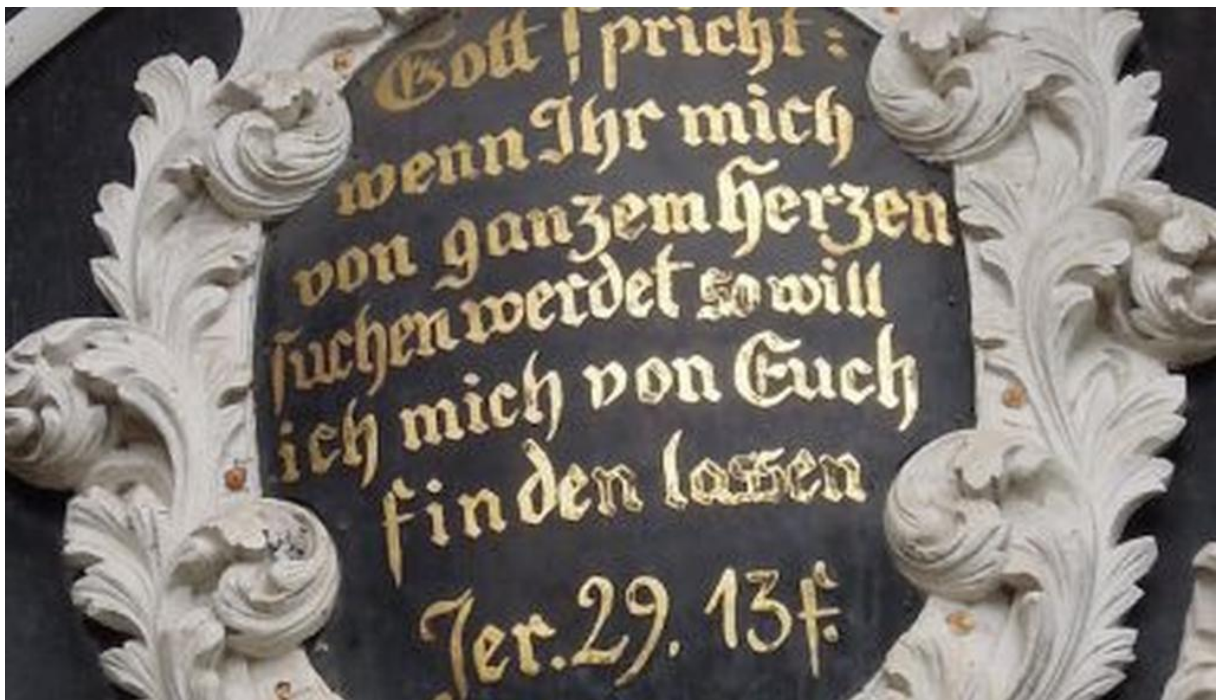 Gott spricht:
wenn Ihr mich
von ganzem Herzen
suchen werdet so will
ich mich von Euch
finden lassen
Jer. 29. 13 f.